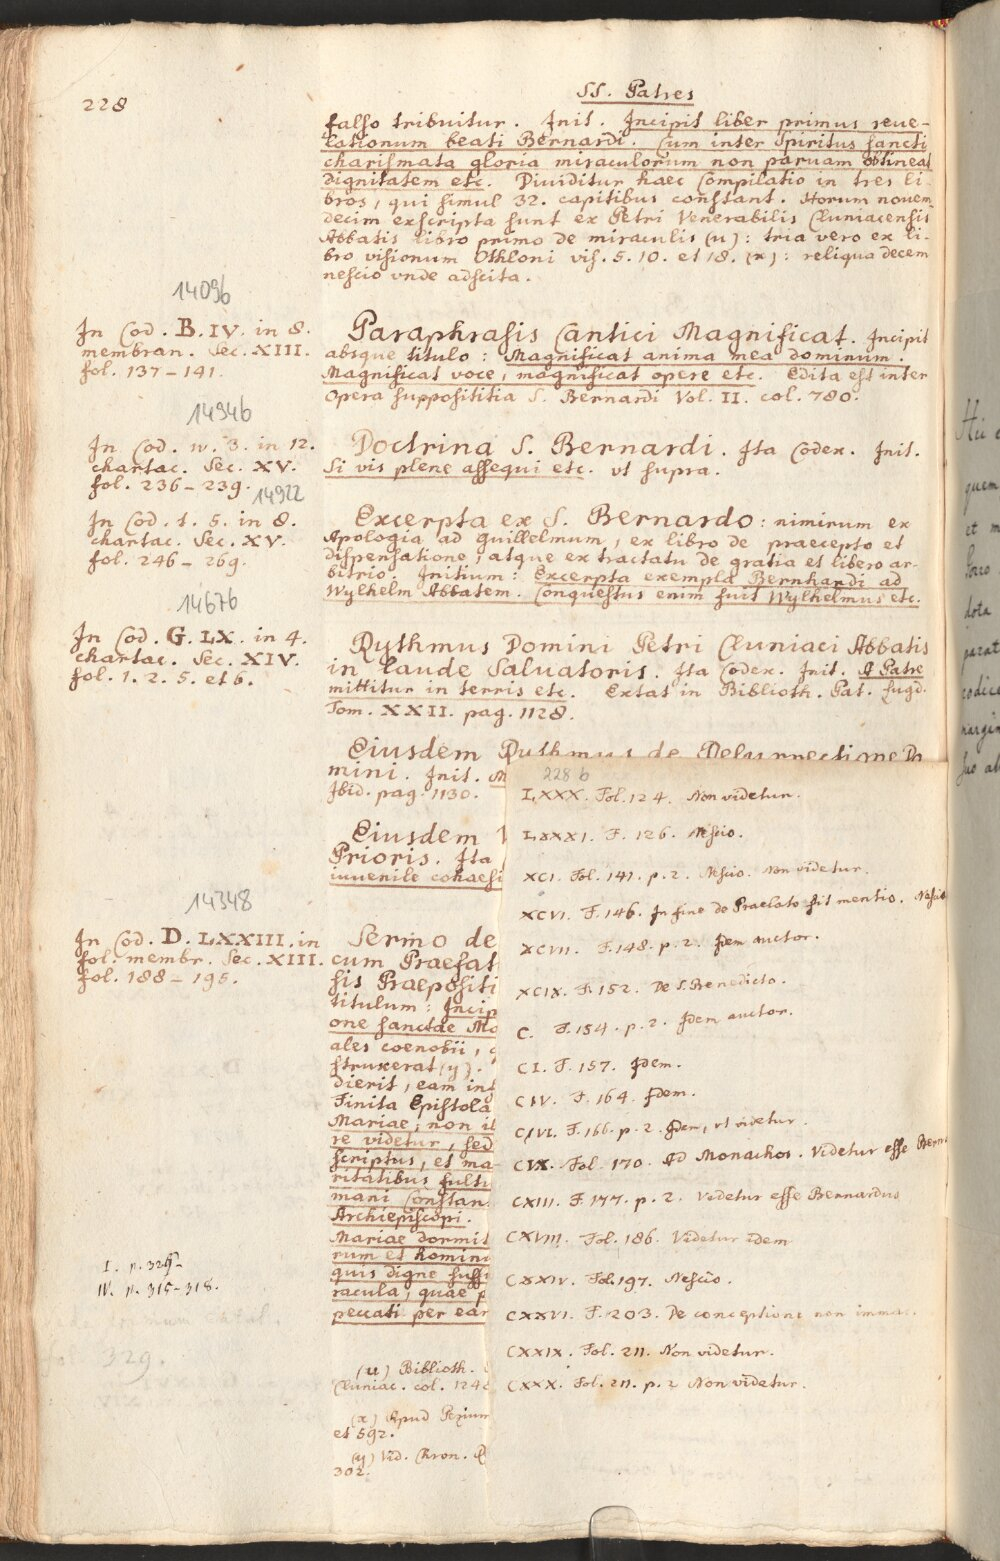 228
SS. Patres
falso tribuitur. Init. Incipit liber primus reue-
lationum beati Bernardi. Cum inter Spiritus sancti
charismata gloria miraculorum non paruam obtineat
dignitatem etc. Diuiditur haec Compilatio in tres li-
bros, qui simul 32. capitibus constant. Horum novem-
decim exscripta sunt ex Petri Venerabilis Cluniacensis
Abbatis libro primo de miraculis (u): tria vero ex li-
bro visionum Othloni vis. 5. 10. et 18. (x): reliqua decem
nescio vnde adscita.
14096
In Cod. B. IV. in 8.
membran. Sec. XIII.
fol. 137-141.
Paraphrasis Cantici Magnificat. Incipit
absque titulo: Magnificat anima mea dominum.
Magnificat voce, magnificat opere etc. Edita est inter
Opera supposititia S. Bernardi Vol. II. col. 780.
14946
In Cod. w. 3. in 12.
chartac. Sec. XV.
fol. 236-239.
Doctrina S. Bernardi. Ita Codex. Init.
Si vis plene assequi etc. vt supra.
14922
In Cod. 1. 5. in 8.
chartac. Sec. XV.
fol. 246-269.
Excerpta ex S. Bernardo: nimirum ex
Apologia ad guillelmum, ex libro de praecepto et
dispensatione, atque ex tractatu de gratia et libero ar-
bitrio. Initium: Excerpta exempla Bernhardi ad
Wylhelm Abbatem. Conquestus enim fuit Wylhelmus etc.
14676
In Cod. G. LX. in 4.
chartac. Sec. XIV.
fol. 1. 2. 5. et 6.
Rythmus Domini Petri Cluniaci Abbatis
in laude Saluatoris. Ita Codex. Init. A Patre
mittitur in terris etc. Extat in Biblioth. Pat. Lugd.
Tom. XXII. pag. 1128.
Eiusdem Rythmus de Resurrectione Do
mini. Init. M
Ibid. pag. 1130.
Eiusdem
Prioris. Ita
iuuenile cohaesi
14348
In Cod. D. LXXIII. in
fol. membr. Sec. XIII.
fol. 188-195.
Sermo de
cum Praefat
sis Praepositi
titulum: Incip
one sanctae Ma
ales coenobii,
struxerat (y).
dierit, eam in
Finita Epistola
Mariae, non il
re videtur, sed
scriptus, et ma-
ritatibus fulti
mani Constan
Archiepiscopi.
Mariae dormit
rum et homin
quis digne suffi
racula, quae p
peccati per ear
I. p. 329
IV. p. 315-318.
329.
(u) Biblioth.
Cluniac. col. 124
(x) Apud Pezium
et 592.
(y) Vid. Chron.
302.
228 b
LXXX. Fol. 124. Non videtur.
LXXXI. F. 126. Nescio.
XCI. Fol. 141. p. 2. Nescio. Non videtur.
XCVI. F. 146. In fine de Praelato fit mentio. Nescio
XCVII. F. 148. p. 2. Idem auctor.
XCIX. F. 152. De S. Benedicto.
C. F. 154. p. 2. Idem auctor.
CI. F. 157. Idem.
CIV. F. 164. Idem.
CIVI. F. 166. p. 2. Idem, vt videtur.
CIX. Fol. 170. Ad Monachos. Videtur esse Bern
CXIII. F. 177. p. 2. Videtur esse Bernardus
CXVIII. Fol. 186. Videtur idem
CXXIV. Fol. 197. Nescio.
CXXVI. F. 203. De conceptione non immac.
CXXIX. Fol. 211. Non videtur.
CXXX. Fol. 211. p. 2 Non videtur.
quem
et
dota
parat
codice
margin